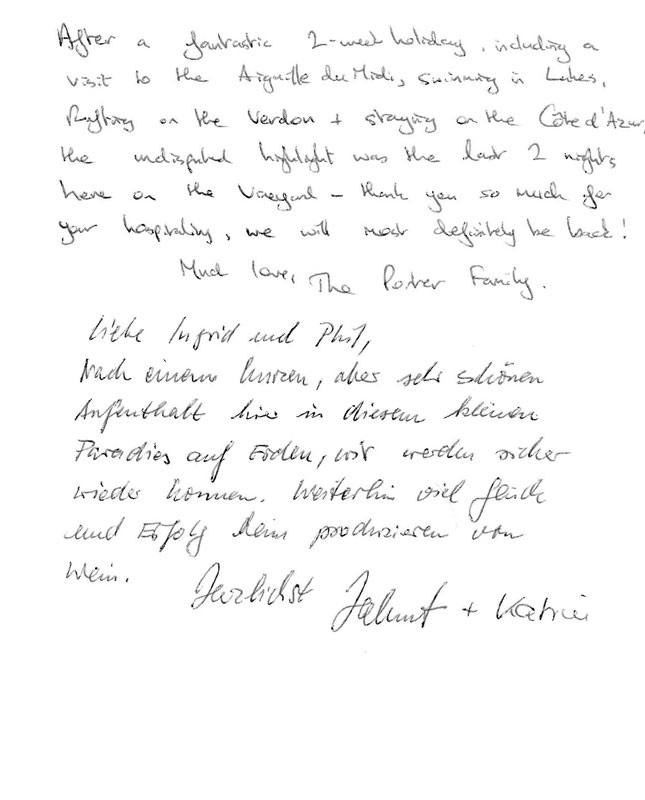 After a fantastic 2-week holiday, including a
visit to the Aiguille du Midi, swimming in Lakes,
Rafting on the Verdon + staying on the Côte d'Azur,
the undisputed highlight was the last 2 nights
here on the Vineyard – thank you so much for
your hospitality, we will most definitely be back!
Much love, The Porter Family.
Liebe Ingrid und Phil,
Nach einem kurzen, aber sehr schönen
Aufenthalt hier in diesem kleinen
Paradies auf Erden, wir werden sicher
wieder kommen. Weiterhin viel Glück
und Erfolg beim produzieren von
Wein.
Herzlichst + Katrin